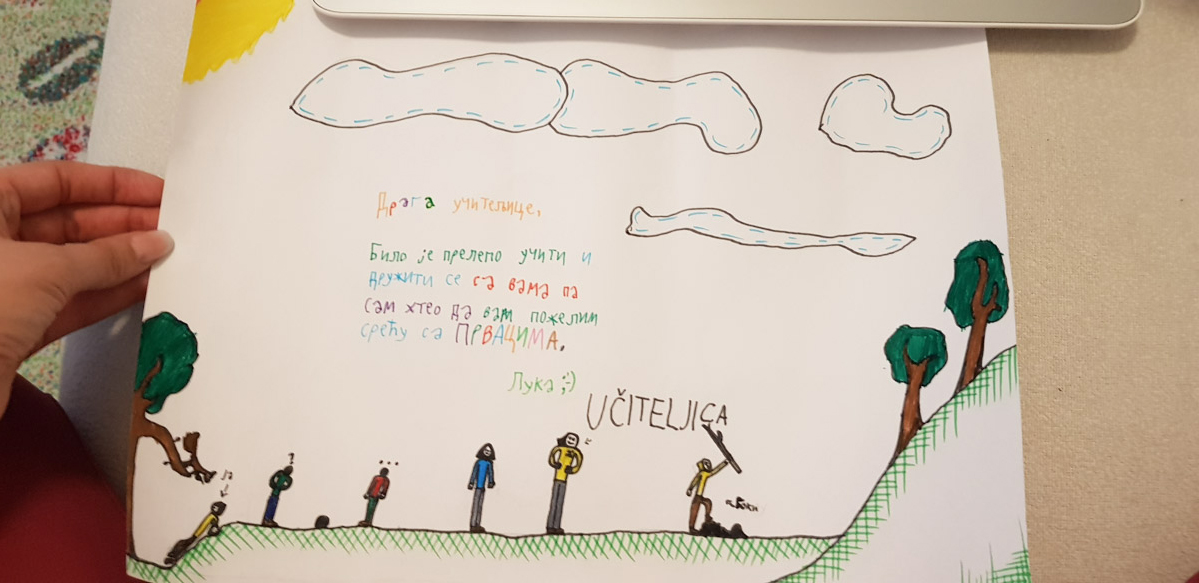 Драга учитељице,
Било је прелепо учити и
дружити се са вама па
сам хтео да вам пожелим
срећу са ПРВАЦИМА.
Лука ;-)
UČITELJICA
?
...
ЈА